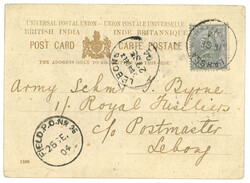 UNIVERSAL POSTAL UNION — UNION POSTALE UNIVERSELLE
BRITISH INDIA INDE BRITANNIQUE
POST CARD CARTE POSTALE
THE ADDRESS ONLY TO BE
LEBONG
Army Schm. J. Byrne
1/ Royal Fusiliers
c/o Postmaster
Lebong
FIELD P.O. No. 16
04